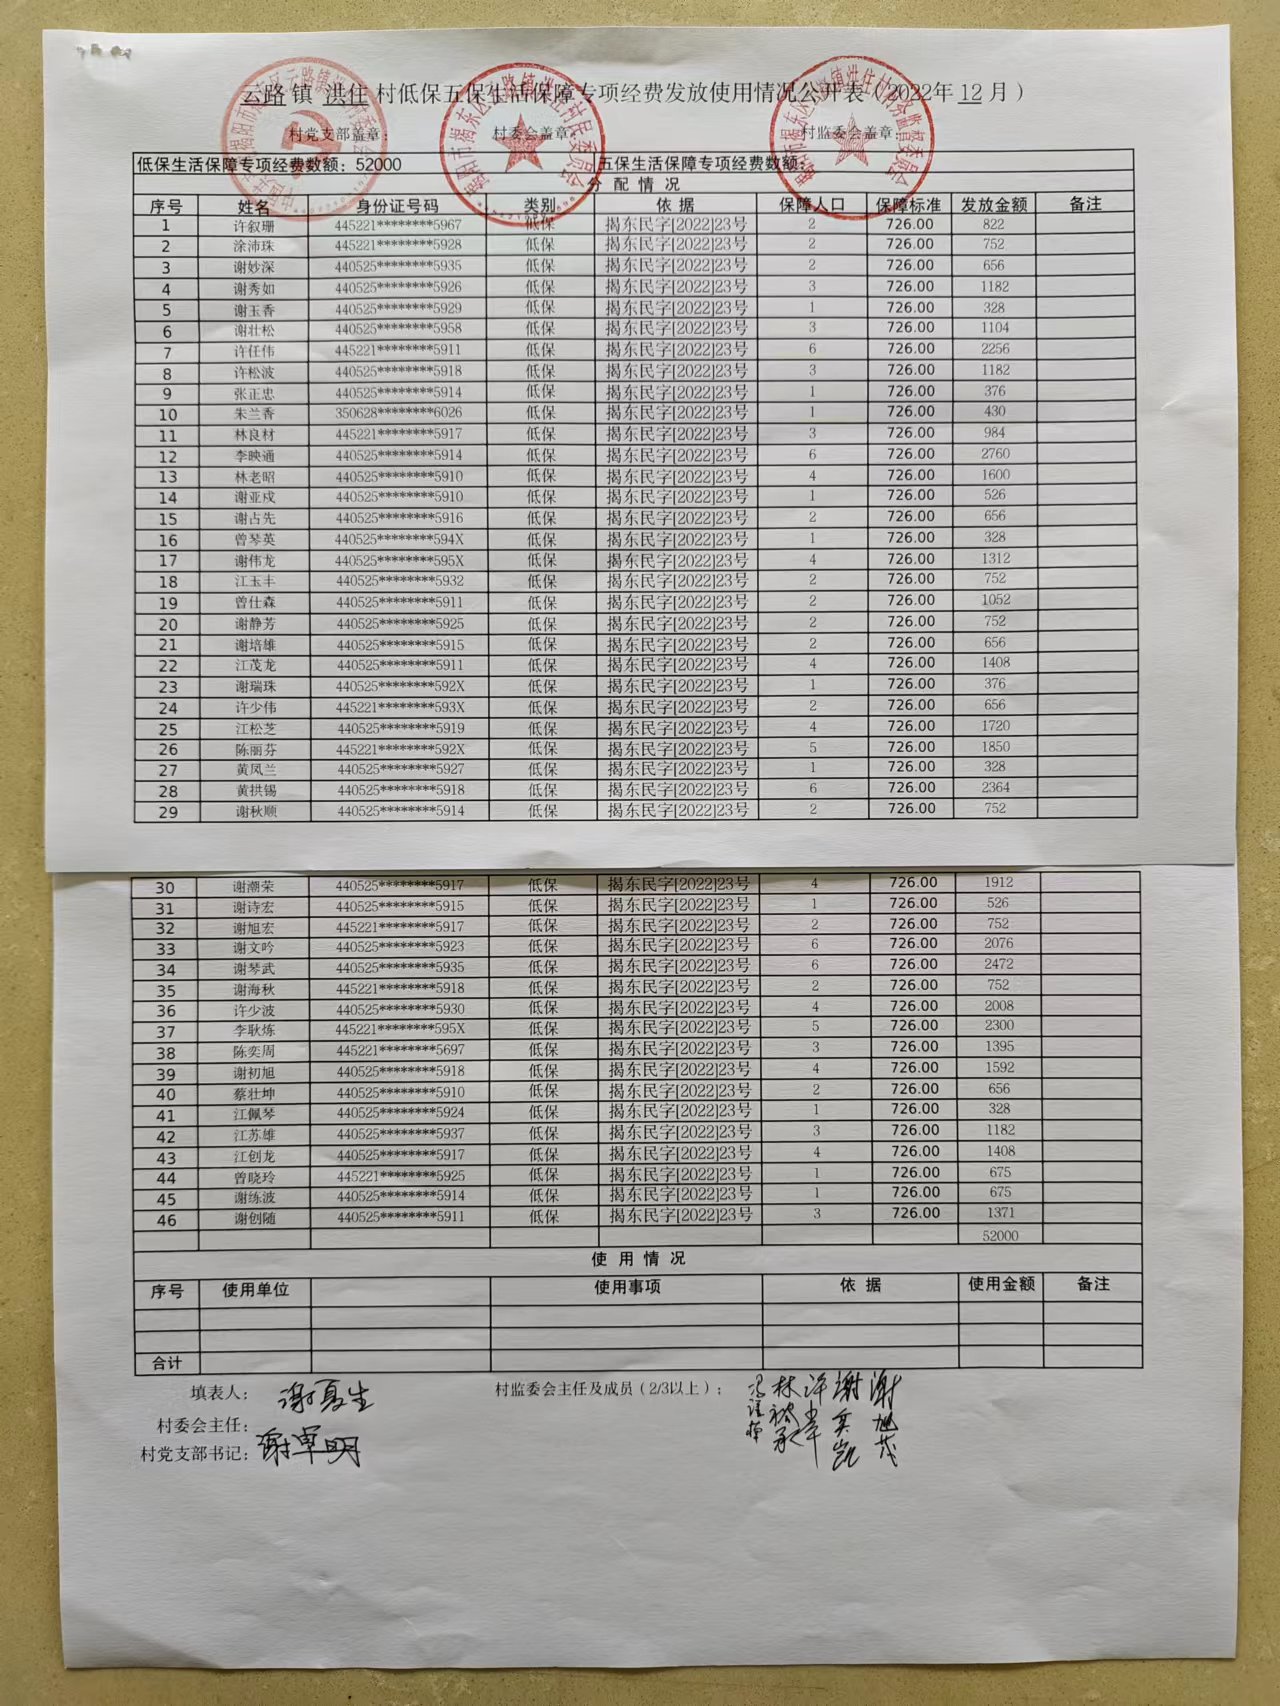 云路 镇 洪住 村低保五保生活保障专项经费发放使用情况公开表（2022年 12 月）
村党支部盖章： 村委会盖章： 村监委会盖章：
低保生活保障专项经费数额：52000 五保生活保障专项经费数额：
分 配 情 况
序号 姓名 身份证号码 类别 依 据 保障人口 保障标准 发放金额 备注
1 许叙珊 445221********5967 低保 揭东民字[2022]23号 2 726.00 822
2 涂沛珠 445221********5928 低保 揭东民字[2022]23号 2 726.00 752
3 谢妙深 440525********5935 低保 揭东民字[2022]23号 2 726.00 656
4 谢秀如 440525********5926 低保 揭东民字[2022]23号 3 726.00 1182
5 谢玉香 440525********5929 低保 揭东民字[2022]23号 1 726.00 328
6 谢壮松 440525********5958 低保 揭东民字[2022]23号 3 726.00 1104
7 许任伟 445221********5911 低保 揭东民字[2022]23号 6 726.00 2256
8 许松波 440525********5918 低保 揭东民字[2022]23号 3 726.00 1182
9 张正忠 440525********5914 低保 揭东民字[2022]23号 1 726.00 376
10 朱兰香 350628********6026 低保 揭东民字[2022]23号 1 726.00 430
11 林良材 445221********5917 低保 揭东民字[2022]23号 3 726.00 984
12 李映通 440525********5914 低保 揭东民字[2022]23号 6 726.00 2760
13 林老昭 440525********5910 低保 揭东民字[2022]23号 4 726.00 1600
14 谢亚成 440525********5910 低保 揭东民字[2022]23号 1 726.00 526
15 谢占先 440525********5916 低保 揭东民字[2022]23号 2 726.00 656
16 曾琴英 440525********594X 低保 揭东民字[2022]23号 1 726.00 328
17 谢伟龙 440525********595X 低保 揭东民字[2022]23号 4 726.00 1312
18 江玉丰 440525********5932 低保 揭东民字[2022]23号 2 726.00 752
19 曾仕森 440525********5911 低保 揭东民字[2022]23号 2 726.00 1052
20 谢静芳 440525********5925 低保 揭东民字[2022]23号 2 726.00 752
21 谢培雄 440525********5915 低保 揭东民字[2022]23号 2 726.00 656
22 江茂龙 440525********5911 低保 揭东民字[2022]23号 4 726.00 1408
23 谢瑞珠 440525********592X 低保 揭东民字[2022]23号 1 726.00 376
24 许少伟 445221********593X 低保 揭东民字[2022]23号 2 726.00 656
25 江松芝 440525********5919 低保 揭东民字[2022]23号 4 726.00 1720
26 陈丽芬 445221********592X 低保 揭东民字[2022]23号 5 726.00 1850
27 黄凤兰 440525********5927 低保 揭东民字[2022]23号 1 726.00 328
28 黄拱锡 440525********5918 低保 揭东民字[2022]23号 6 726.00 2364
29 谢秋顺 440525********5914 低保 揭东民字[2022]23号 2 726.00 752
30 谢潮荣 440525********5917 低保 揭东民字[2022]23号 4 726.00 1912
31 谢诗宏 440525********5915 低保 揭东民字[2022]23号 1 726.00 526
32 谢旭宏 445221********5917 低保 揭东民字[2022]23号 2 726.00 752
33 谢文吟 440525********5923 低保 揭东民字[2022]23号 6 726.00 2076
34 谢琴武 440525********5935 低保 揭东民字[2022]23号 6 726.00 2472
35 谢海秋 445221********5918 低保 揭东民字[2022]23号 2 726.00 752
36 许少波 440525********5930 低保 揭东民字[2022]23号 4 726.00 2008
37 李耿炼 445221********595X 低保 揭东民字[2022]23号 5 726.00 2300
38 陈奕周 445221********5697 低保 揭东民字[2022]23号 3 726.00 1395
39 谢初旭 440525********5918 低保 揭东民字[2022]23号 4 726.00 1592
40 蔡壮坤 440525********5910 低保 揭东民字[2022]23号 2 726.00 656
41 江佩琴 440525********5924 低保 揭东民字[2022]23号 1 726.00 328
42 江苏雄 440525********5937 低保 揭东民字[2022]23号 3 726.00 1182
43 江创龙 440525********5917 低保 揭东民字[2022]23号 4 726.00 1408
44 曾晓玲 445221********5925 低保 揭东民字[2022]23号 1 726.00 675
45 谢练波 440525********5914 低保 揭东民字[2022]23号 1 726.00 675
46 谢创随 440525********5911 低保 揭东民字[2022]23号 3 726.00 1371
52000
使 用 情 况
序号 使用单位 使用事项 依 据 使用金额 备注
合计
填表人： 谢夏生 村监委会主任及成员（2/3以上）： 林 许 谢奕凯 谢旭茂
村委会主任：
村党支部书记： 谢卓明